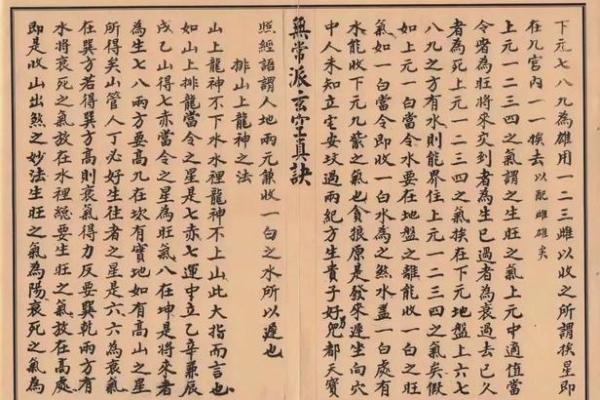 下元七八九為雄用一二三雌以收之所謂挨星即
在九宮內一一挨去以配雌雄矣
上元一二三四之氣謂之生旺之氣上元中適值當
令者為旺將來交到者為生已過者為衰過去已久
者為死上元一二三四之氣挨在下元地盤上六七
八九之方有水則能界住上元一二三四之氣矣假
如上元一白當令水要在地盤之離龍收一白之旺
氣如一白當令即收一白水為之煞水蓋一白處有
水能收下元九紫之氣也貪狼原是發來遲坐向穴
中人未知立宅安坟過兩紀方生貴子好男兒都天寶
無常派玄空真訣
照經語謂人地兩元兼收一白之水所以遲也
排山上龍神之法
山上龍神不下水水裡龍神不上山此大指而言也
如山上排龍當令之星是七赤七運中立乙辛兼辰
戌乙山得七赤當令之星為旺氣八在坤是將來者
為生七八兩方要高九在坎有實地如有高山之星
所得矣山管人丁必好生往者之星是六六為衰氣
在巽方若得巽方高則衰氣得力反要巽乾兩方有
水將衰死之氣放在水裡總要生旺之氣放在高處
即是收山出煞之妙法生旺之氣為陽衰死之氣為